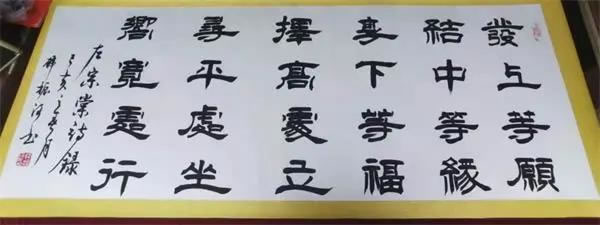 發上等願
結中等緣
享下等福
擇高處立
尋平處坐
嚮寬處行
左宗棠詩錄
己亥之月
振河书